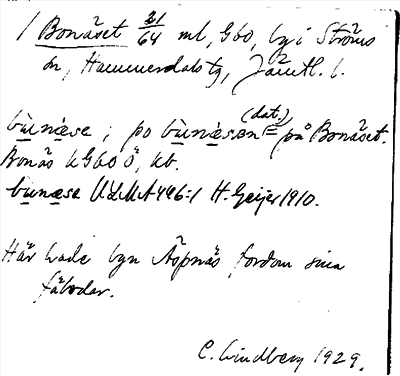 1 Bonäset 21/64 ml, G60, by i Ströms
sn, Hammerdals tg, Jämtl. l.
bùnæse; po bùnæsən (dat.) = på Bonäset.
Bonäs kG60 ö, kb.
bùnæse ULMA 446:1 H. Geijer 1910.
Här hade byn Äspnäs fordom sina
fäbodar.
C. Lindberg 1929.